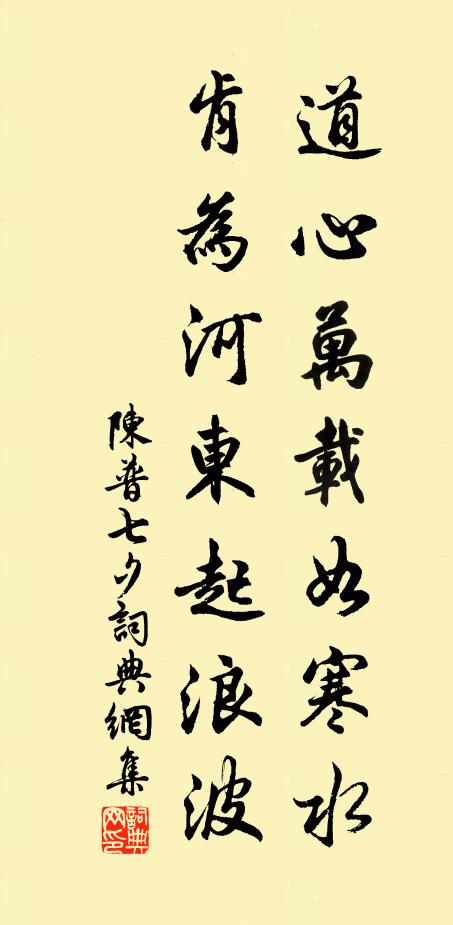 道心萬載如寒水
肯為河東起浪波
陳普七夕詞典網集
詞典
网印